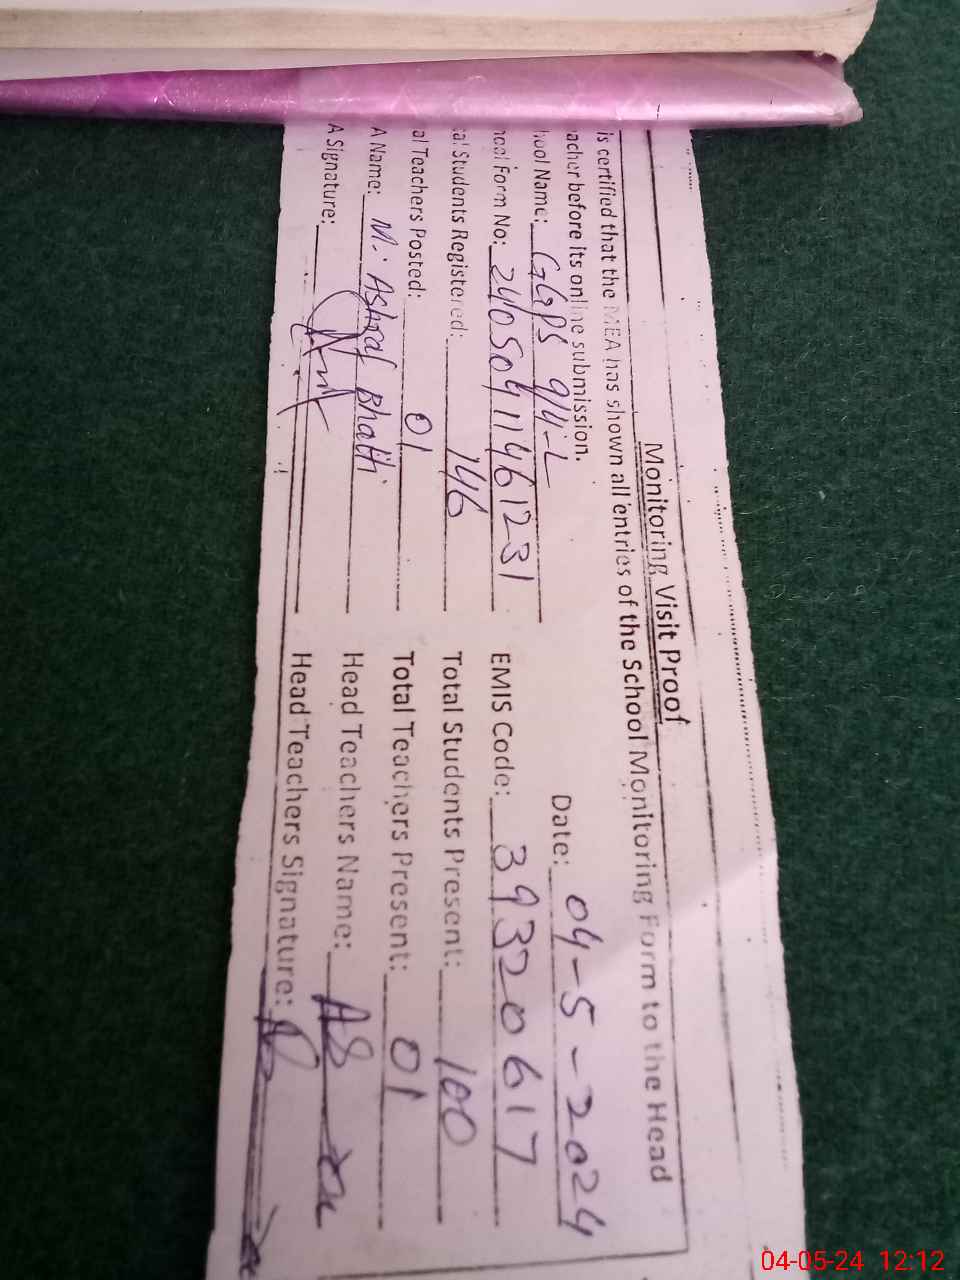 Monitoring Visit Proof
is certified that the MEA has shown all entries of the School Monitoring Form to the Head
acher before its online submission.
Date: 04-5-2024
hool Name: GGPS 9/4-L
hool Form No: 24050411461231 EMIS Code: 39320617
al Students Registered: 146 Total Students Present: 100
al Teachers Posted: 01 Total Teachers Present: 01
A Name: M. Ashraf Bhatti Head Teachers Name:
A Signature: Head Teachers Signature:
04-05-24 12:12